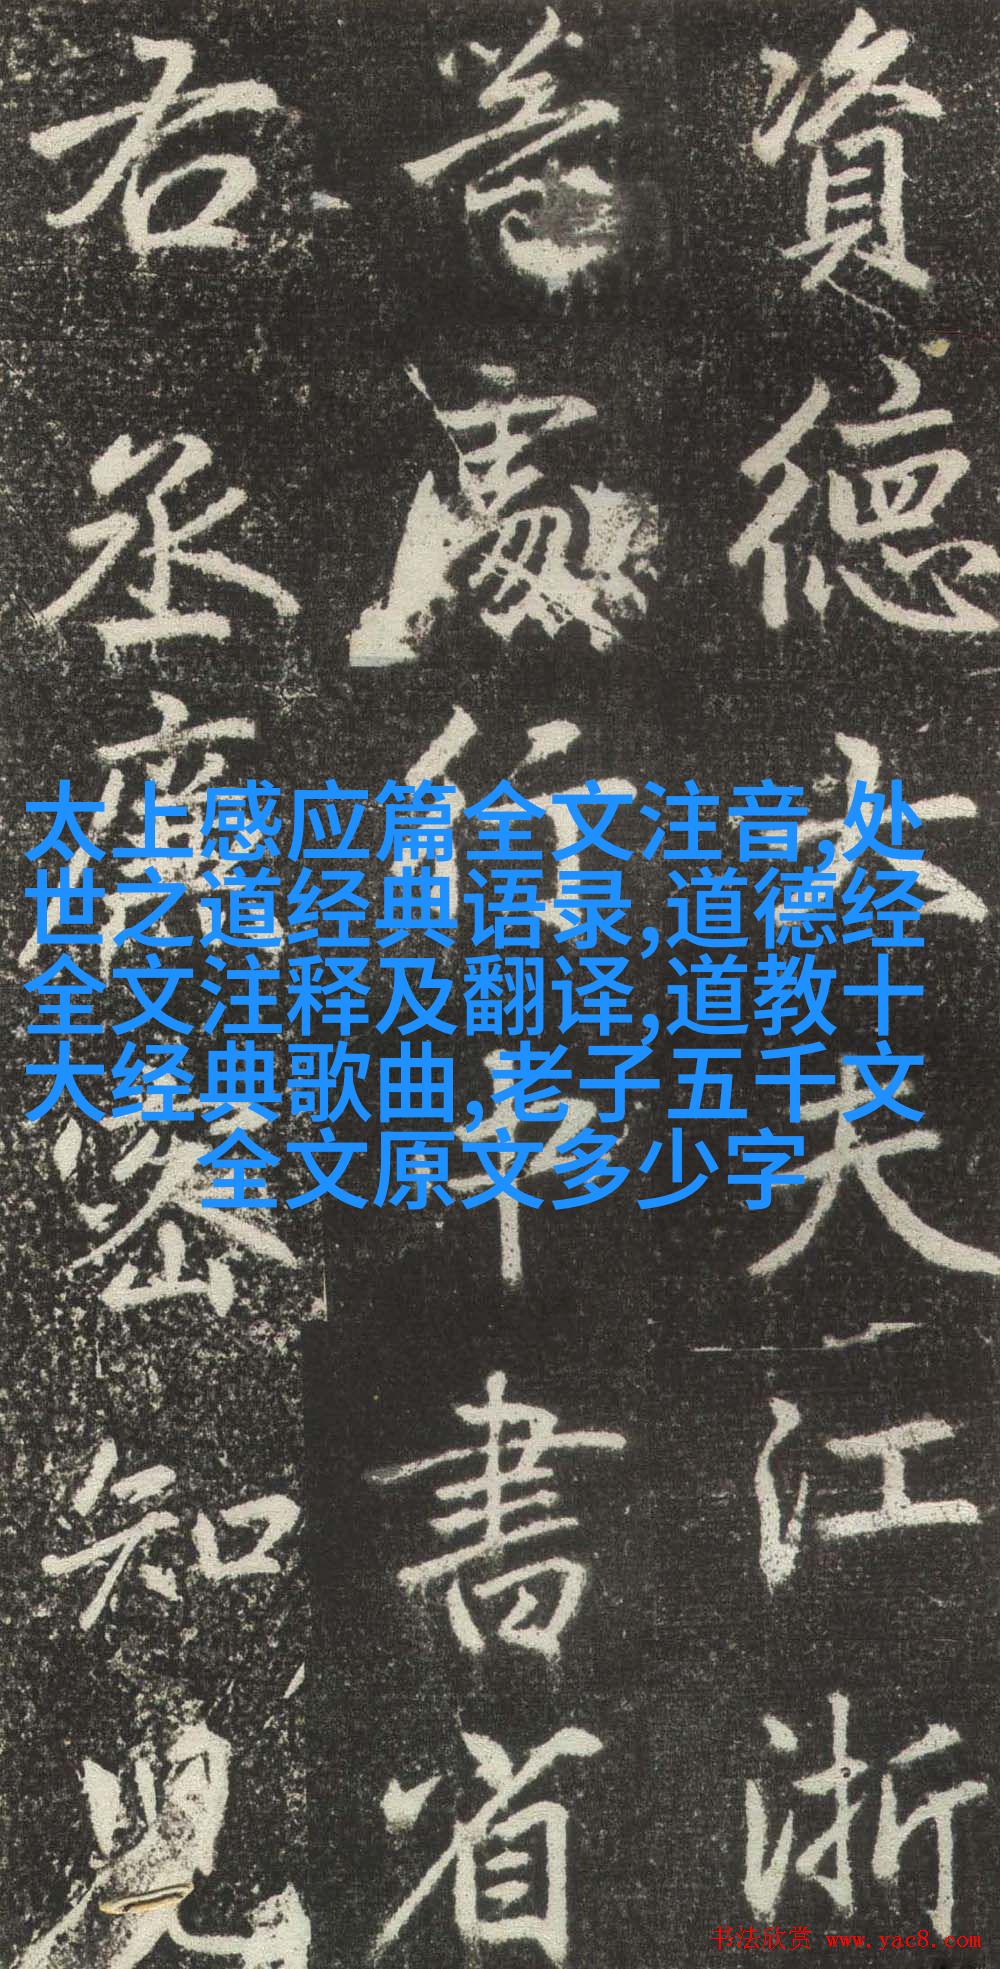 資德大夫江浙
等處行中書省
右丞廉密知兒
太上感应篇全文注音,处
世之道经典语录,道德经
全文注释及翻译,道教十
大经典歌曲,老子五千文
全文原文多少字
书法欣赏 www.yac8.com